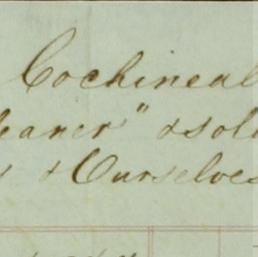 Cochineal
eaner" & sol
s & Ourselves